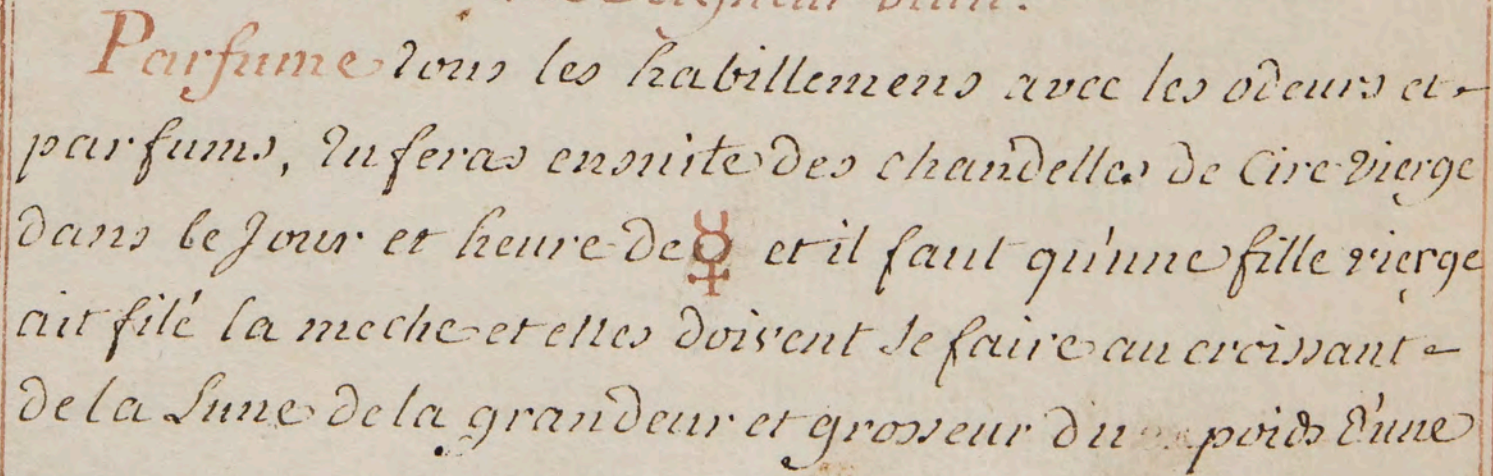 Parfume tous les habillemens avec les odeurs et
parfums, Tu feras ensuite des chandelles de Cire vierge
dans le Jour et heure de ☿ et il faut qu'une fille vierge
ait filé la meche et elles doivent se faire au croissant
de la Lune de la grandeur et grosseur du poids d'une